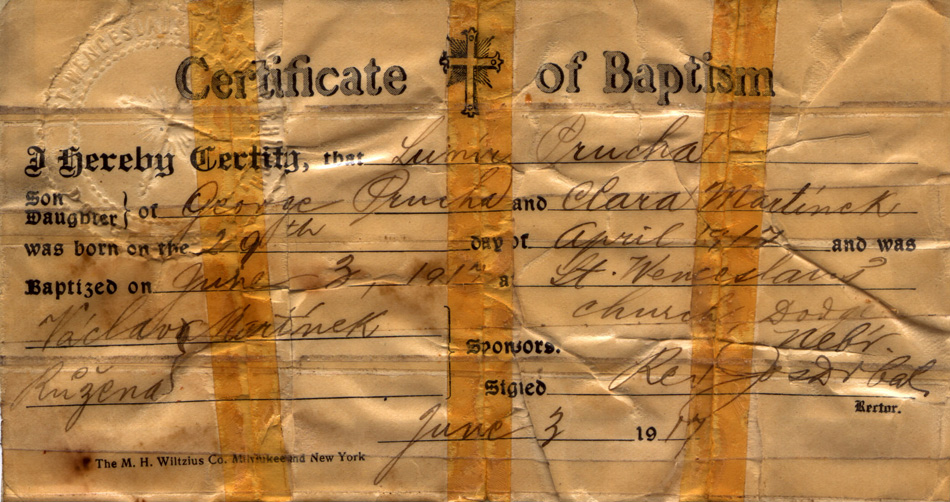 WENCESLAUS
Certificate of Baptism
I Hereby Certify, that Lumir Prucha
Son
Daughter } of George Prucha and Clara Martinek
was born on the 29th day of April 1917 and was
Baptized on June 3, 1917 at St. Wenceslaus
church Dodge
Nebr.
Václav Martínek
Sponsors.
Růžena
Signed Rev. Jos. Drbal
Rector.
June 3 1917
The M. H. Wiltzius Co. Milwaukee and New York